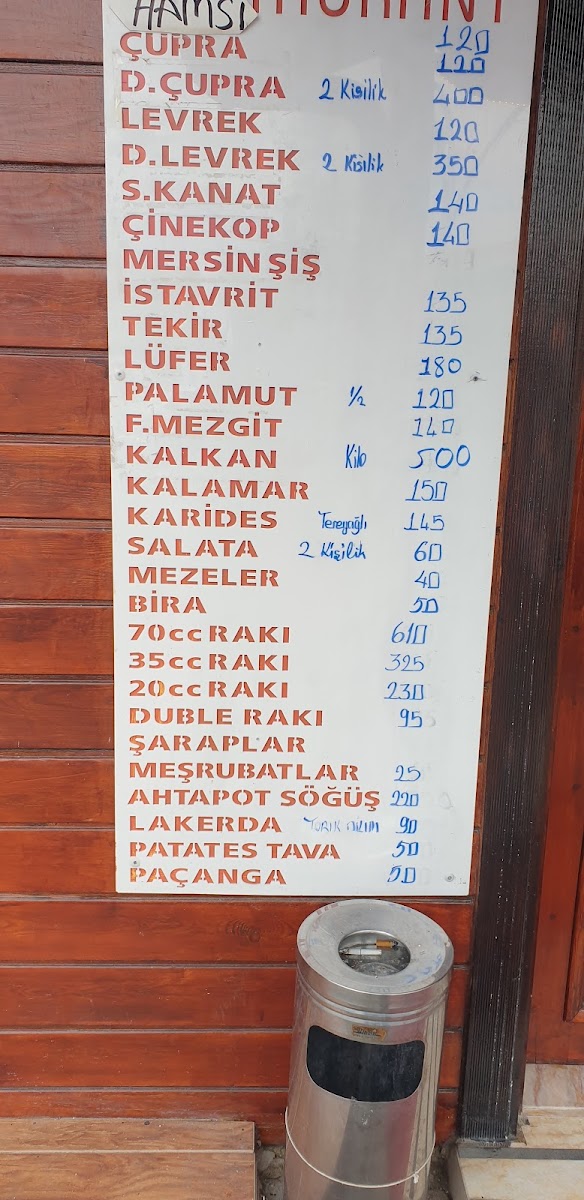 HAMSİ 120
ÇUPRA 120
D.ÇUPRA 2 Kişilik 400
LEVREK 120
D.LEVREK 2 Kişilik 350
S.KANAT 140
ÇİNEKOP 140
MERSİN ŞİŞ
İSTAVRİT 135
TEKİR 135
LÜFER 180
PALAMUT 1/2 120
F.MEZGİT 140
KALKAN Kilo 500
KALAMAR 150
KARİDES Tereyağlı 145
SALATA 2 Kişilik 60
MEZELER 40
BİRA 50
70cc RAKI 610
35cc RAKI 325
20cc RAKI 230
DUBLE RAKI 95
ŞARAPLAR
MEŞRUBATLAR 25
AHTAPOT SÖĞÜŞ 220
LAKERDA 90
PATATES TAVA 50
PAÇANGA 50